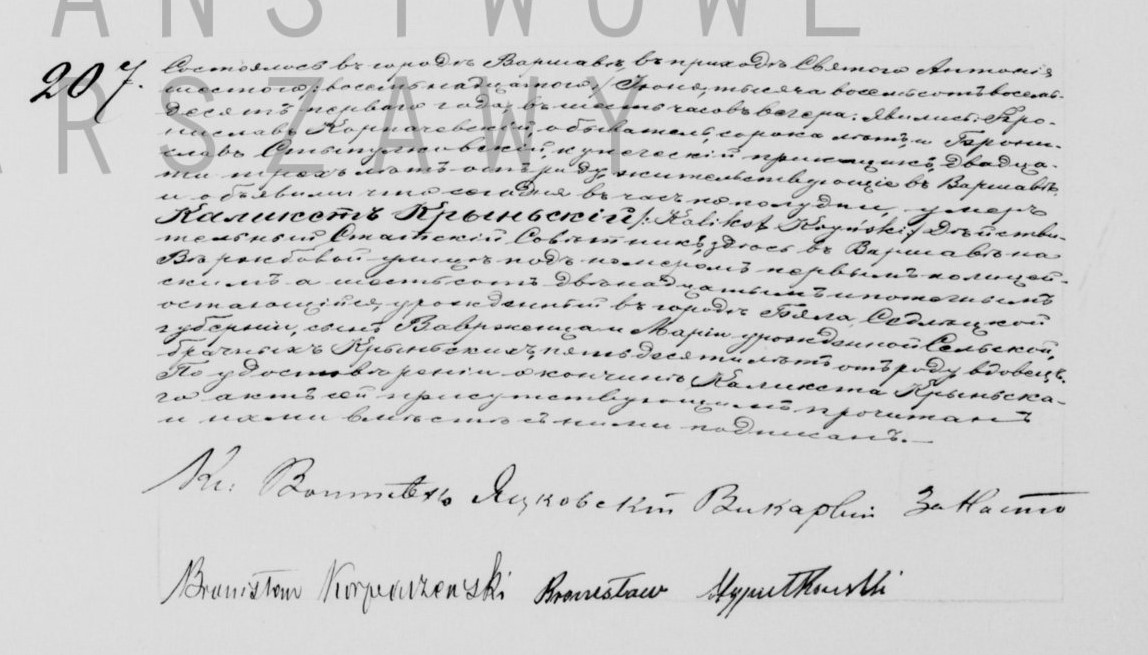 AŃSTWOWE
ARSZAWY
207.
Состоялось въ городѣ Варшавѣ въ приходѣ Святого Антонія
шестого /: восемьнадцатого / Іюня тысяча восемьсотъ восемь-
десятъ перваго года, въ шесть часовъ вечера. Явились: Бро-
ниславъ Корпачевскій, обыватель, сорока лѣтъ, и Брони-
славъ Стыпулковскій, купеческій прикащикъ, двадца-
ти трехъ лѣтъ отъ роду, жительствующіе въ Варшавѣ,
и объявили что сегодня въ часъ пополудни, умеръ
Каликстъ Крыньскій /: Kalikst Kryński / Дѣйстви-
тельный Статскій Совѣтникъ, здѣсь въ Варшавѣ на
Вержбовой улицѣ подъ номеромъ первымъ полицей-
скимъ а шестьсотъ двѣнадцатымъ ипотечнымъ
остающійся, урожденный въ городѣ Бяла, Сѣдлецкой
губерніи, сынъ Вавржеица и Маріи урожденной Сельской,
брачныхъ Крыньскихъ, пятьдесяти лѣтъ отъ роду вдовецъ.
По удостовѣреніи о кончинѣ Каликста Крыньска-
го актъ сей присутствующимъ прочитанъ
и нами вмѣстѣ съ ними подписанъ.—
Кс: Яцковскій Викарвій За Насто
Bronisław Korpaczewski Bronisław Stypułkowski